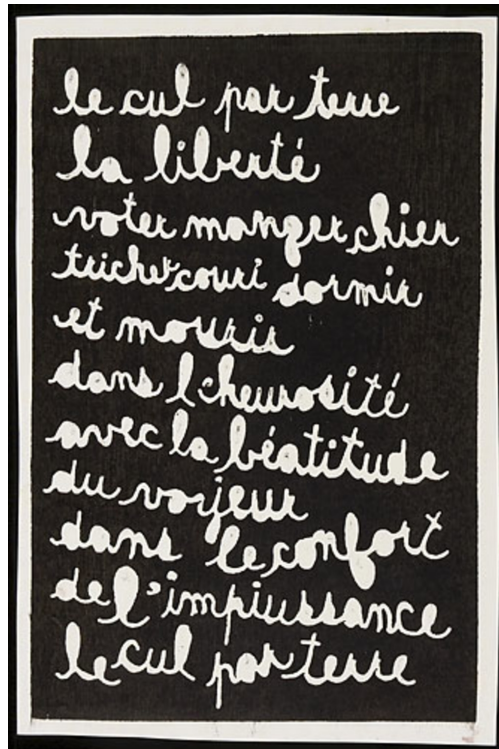 le cul par terre
la liberté
voter manger chier
tricher couri dormir
et mourir
dans l'cheurosité
avec la béatitude
du voyeur
dans le confort
de l'impiussance
le cul par terre